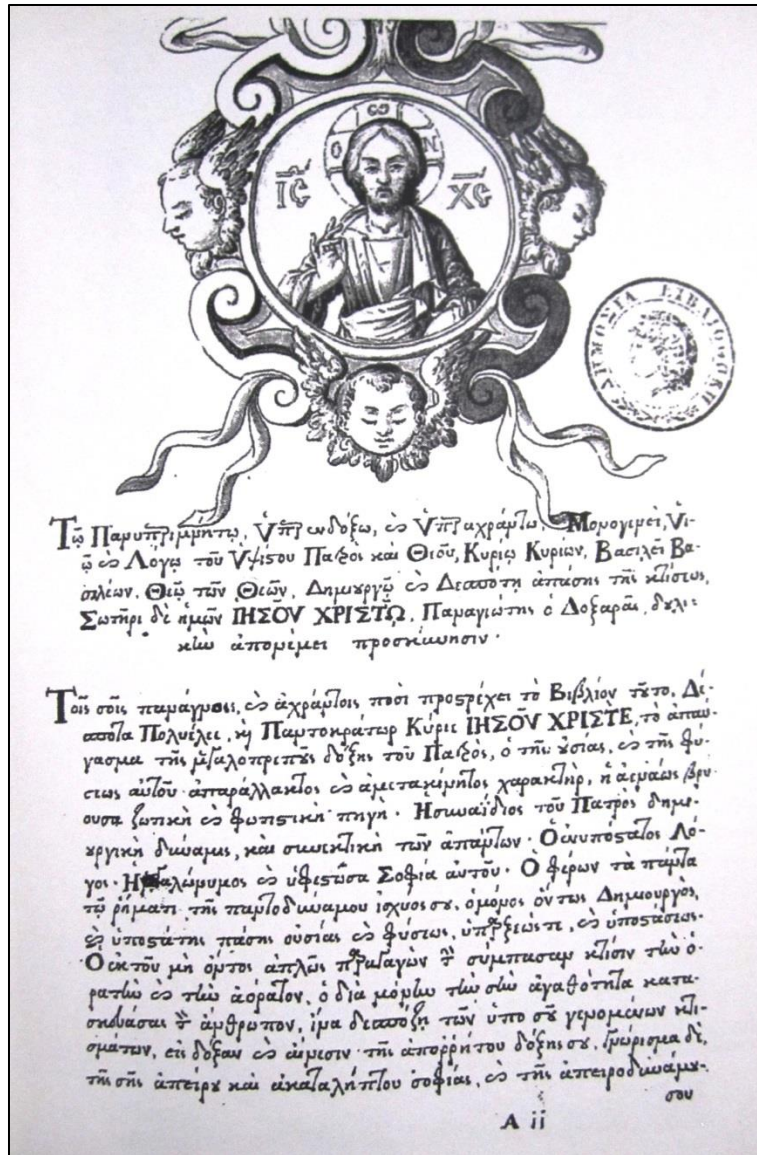 ὁ ὢ Ν
ΙϹ ΧϹ
ΔΗΜΟΣΙΑ ΒΙΒΛΙΟΘΗΚΗ
Τῷ Παρυπεριμνήτῳ, Ὑπερενδόξῳ, ϗ Ὑπεραχράντῳ, Μονογενεῖ, Υἱ-
ῷ ϗ Λόγῳ τοῦ Υψίςου Πατρὸς καὶ Θεοῦ, Κυρίῳ Κυρίων, Βασιλεῖ Βα-
σιλέων, Θεῷ τῶν Θεῶν, Δημιουργῷ ϗ Δεσπότῃ ἁπάσης τῆς κτίσεως,
Σωτῆρι δὲ ἡμῶν ΙΗΣΟΥ͂ ΧΡΙΣΤΩ͂, Παναγιώτης ὁ Δοξαρᾶς, δουλι-
κὴν ἀπονέμει προσκύνησιν.
Τοῖς σοῖς πανάγνοις, ϗ ἀχράντοις ποσὶ προςρέχει τὸ Βιβλίον τȣ͂το, Δέ-
σποτα Πολυέλεε, ϗ Παντοκράτωρ Κύριε ΙΗΣΟΥ͂ ΧΡΙΣΤΕ, τὸ ἀπαύ-
γασμα τῆς μεγαλοπρεπȣ͂ς δόξης τοῦ Πατρὸς, ὁ τῆς ȣ̓σίας, ϗ τῆς φύ-
σεως αὐτοῦ ἀπαράλλακτος ϗ ἀμετακίνητος χαρακτὴρ, ἡ ἀενάως βρύ-
ουσα ζωτικὴ ϗ φωτιςικὴ πηγή. Ἡ συναΐδιος τοῦ Πατρὸς δημι-
ȣργικὴ δύναμις, καὶ συνεκτικὴ τῶν ἁπάντων. Ὁ ἐνυπόςατος Λό-
γος. Ἡ μεγαλώνυμος ϗ ὑφεςῶσα Σοφία αὐτοῦ. Ὁ φέρων τὰ πάντα
τῷ ῥήματι τῆς παντοδυνάμου ἰσχύος σου, ὁ μόνος ὄντως Δημιουργὸς,
ϗ ὑποςάτης πάσης οὐσίας ϗ φύσεως, ὑπάρξεώς τε, ϗ ὑποςάσεως.
Ὁ ἐκ τοῦ μὴ ὄντος ἁπλῶς παραγαγὼν τὴν σύμπασαν κτίσιν τὴν ὁ-
ρατὴν ϗ τὴν ἀόρατον, ὁ διὰ μόνην τὴν σὴν ἀγαθότητα κατα-
σκευάσας τὸν ἄνθρωπον, ἵνα δεσπόζῃ τῶν ὑπὸ σοῦ γενομένων κτι-
σμάτων, εἰς δόξαν ϗ αἴνεσιν τῆς ἀπορρήτου δόξης σου, γνώρισμα δὲ,
τῆς σῆς ἀπείρȣ καὶ ἀκαταλήπτου σοφίας, ϗ τῆς ἀπειροδυνάμȣ
σου
Α ii